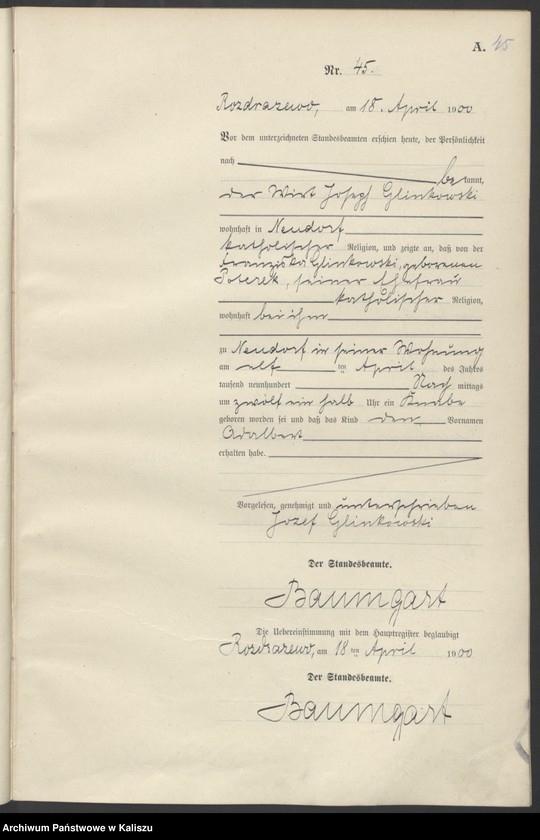 A. 45
Nr. 45.
Rozdrazewo, am 18. April 1900
Vor dem unterzeichneten Standesbeamten erschien heute, der Persönlichkeit
nach bekannt,
der Wirt Joseph Glinkowski
wohnhaft in Neudorf
katholischer Religion, und zeigte an, daß von der
Franziska Glinkowski, geborenen
Poterek, seiner Ehefrau
katholischer Religion,
wohnhaft bei ihm
zu Neudorf in seiner Wohnung
am elf ten April des Jahres
tausend neunhundert Nach mittags
um zwölf ein halb Uhr ein Knabe
geboren worden sei und daß das Kind den Vornamen
Adalbert
erhalten habe.
Vorgelesen, genehmigt und unterschrieben
Jozef Glinkowski
Der Standesbeamte.
Baumgart
Die Uebereinstimmung mit dem Hauptregister beglaubigt
Rozdrazewo, am 18 ten April 1900
Der Standesbeamte.
Baumgart
Archiwum Państwowe w Kaliszu